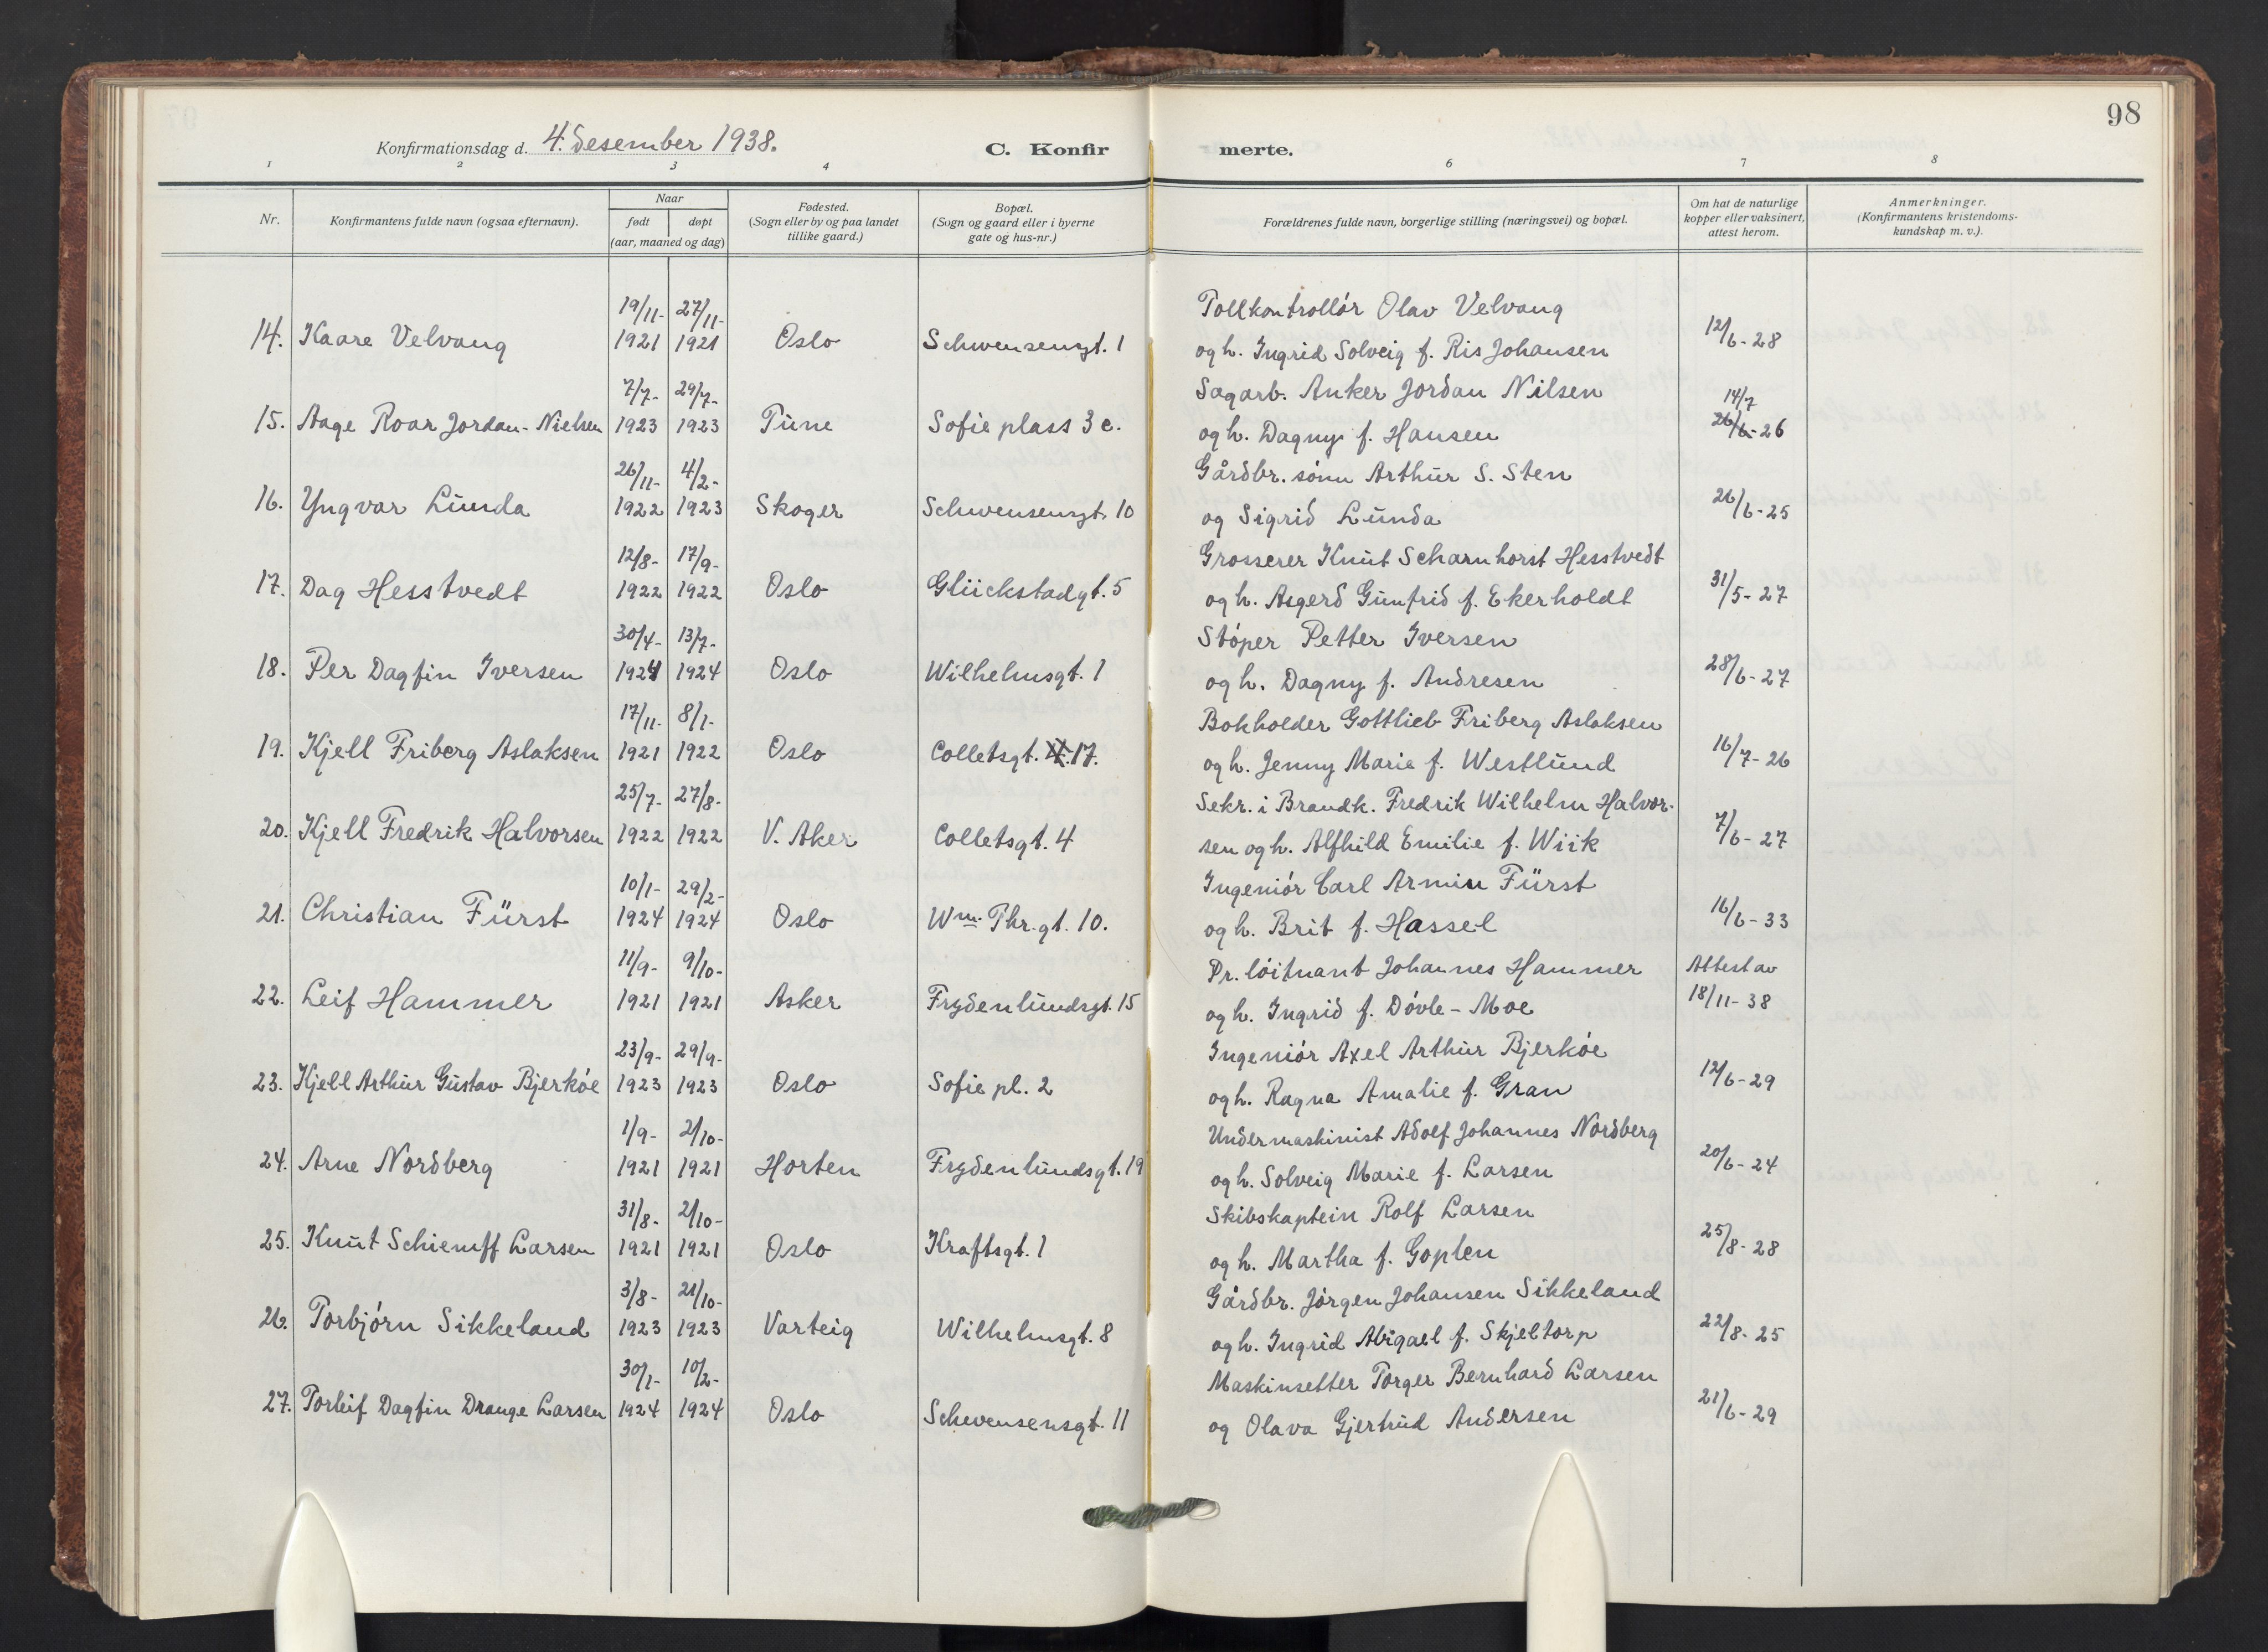 98
Konfirmationsdag d. 4. desember 1938. C. Konfirmerte.
1 2 3 4 6 7 8
Nr.
Konfirmantens fulde navn (ogsaa efternavn).
Naar
født døpt
(aar, maaned og dag)
Fødested.
(Sogn eller by og paa landet
tillike gaard.)
Bopæl.
(Sogn og gaard eller i byerne
gate og hus-nr.)
Forældrenes fulde navn, borgerlige stilling (næringsvei) og bopæl.
Om hat de naturlige
kopper eller vaksinert,
attest herom.
Anmerkninger.
(Konfirmantens kristendoms-
kundskap m. v.).
19/11- 27/11- Tollkontrollör Olav Velvang
14. Kaare Velvang 1921 1921 Oslo Schwensensgt. 1 og h. Ingrid Solveig f. Ris Johansen 12/6-28
7/7- 29/7- Sagarb. Anker Jordan Nilsen 14/7
15. Aage Roar Jordan-Nielsen 1923 1923 Tune Sofie plass 3 c. og h. Dagny f. Hansen 26/6-26
26/11- 4/2- Gårdbr. sönn Arthur S. Sten
16. Yngvar Lunda 1922 1923 Skoger Schwensensgt. 10 og Sigrid Lunda 26/6-25
12/8- 17/9- Grosserer Knut Scharnhorst Hesstvedt
17. Dag Hesstvedt 1922 1922 Oslo Glückstadgt. 5 og h. Asgerd Gunfrid f. Ekerholdt 31/5-27
30/4- 13/7- Stöper Petter Iversen
18. Per Dagfin Iversen 1924 1924 Oslo Wilhelmsgt. 1 og h. Dagny f. Andresen 28/6-27
17/11- 8/1- Bokholder Gottlieb Friberg Aslaksen
19. Kjell Friberg Aslaksen 1921 1922 Oslo Colletsgt. 17. og h. Jenny Marie f. Westlund 16/7-26
25/7- 27/8- Sekr. i Brandk. Fredrik Wilhelm Halvor-
20. Kjell Fredrik Halvorsen 1922 1922 V. Aker Colletsgt. 4 sen og h. Alfhild Emilie f. Wiik 7/6-27
10/1- 29/2- Ingeniör Carl Armin Fürst
21. Christian Fürst 1924 1924 Oslo Wm. Thr. gt. 10. og h. Brit f. Hassel 16/6-33
11/9- 9/10- Pr. löitnant Johannes Hammer Attest av
22. Leif Hammer 1921 1921 Asker Frydenlundsgt. 15 og h. Ingrid f. Dövle-Moe 18/11-38
23/9- 29/9- Ingeniör Axel Arthur Bjerköe
23. Kjell Arthur Gustav Bjerköe 1923 1923 Oslo Sofie pl. 2 og h. Ragna Amalie f. Gran 12/6-29
1/9- 2/10- Undermaskinist Adolf Johannes Nordberg
24. Arne Nordberg 1921 1921 Horten Frydenlundsgt. 19 og h. Solveig Marie f. Larsen 20/6-24
31/8- 2/10- Skibskaptein Rolf Larsen
25. Knut Schiemff Larsen 1921 1921 Oslo Kraftsgt. 1 og h. Martha f. Goplen 25/8-28
3/8- 21/10- Gårdbr. Jörgen Johansen Sikkeland
26. Torbjörn Sikkeland 1923 1923 Varteig Wilhelmsgt. 8 og h. Ingrid Abigael f. Skjeltorp 22/8-25
30/1- 10/2- Maskinsetter Torger Bernhard Larsen
27. Torleif Dagfin Drange Larsen 1924 1924 Oslo Schwensensgt. 11 og Olava Gjertrud Andersen 21/6-29